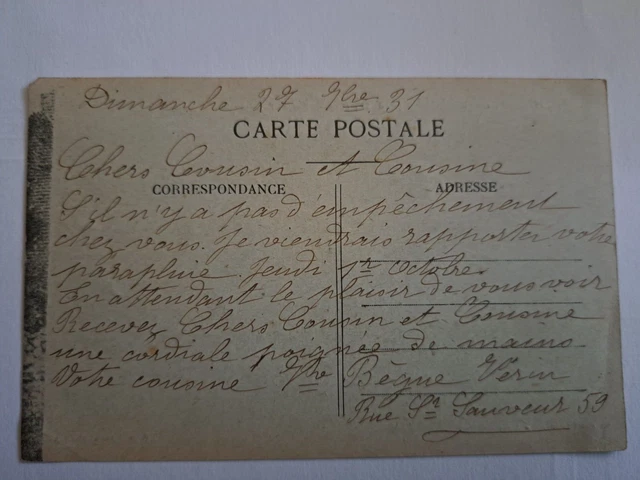 Dimanche 27 7bre 31
CARTE POSTALE
Chers Cousin et Cousine
CORRESPONDANCE
ADRESSE
S'il n'y a pas d'empêchement
chez vous. Je viendrais rapporter votre
parapluie Jeudi 1er Octobre.
En attendant le plaisir de vous voir
Recevez Chers Cousin et Cousine
une cordiale poignée de mains
Votre cousine Vve Bègue Vérin
Rue St Sauveur 59